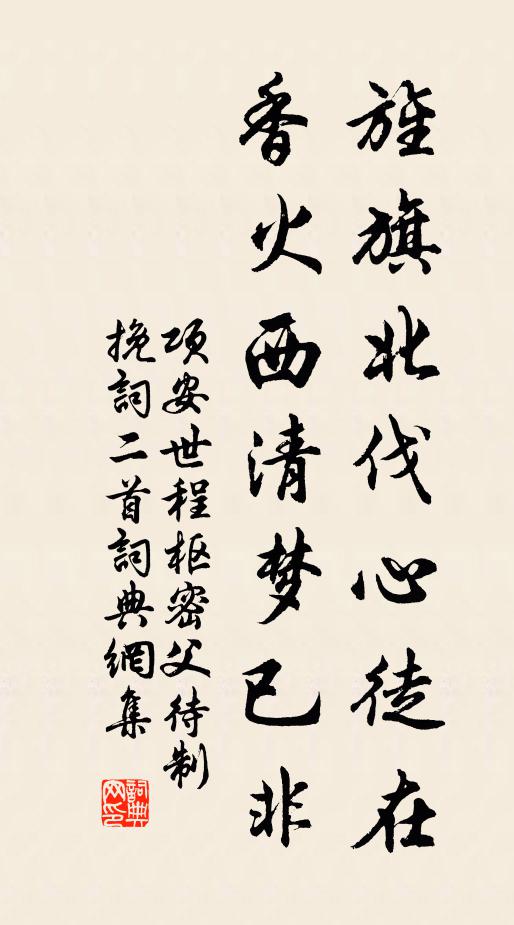 旌旗北伐心徒在
香火西清梦已非
项安世程枢密父待制
挽詞二首詞典網集
詞典网印